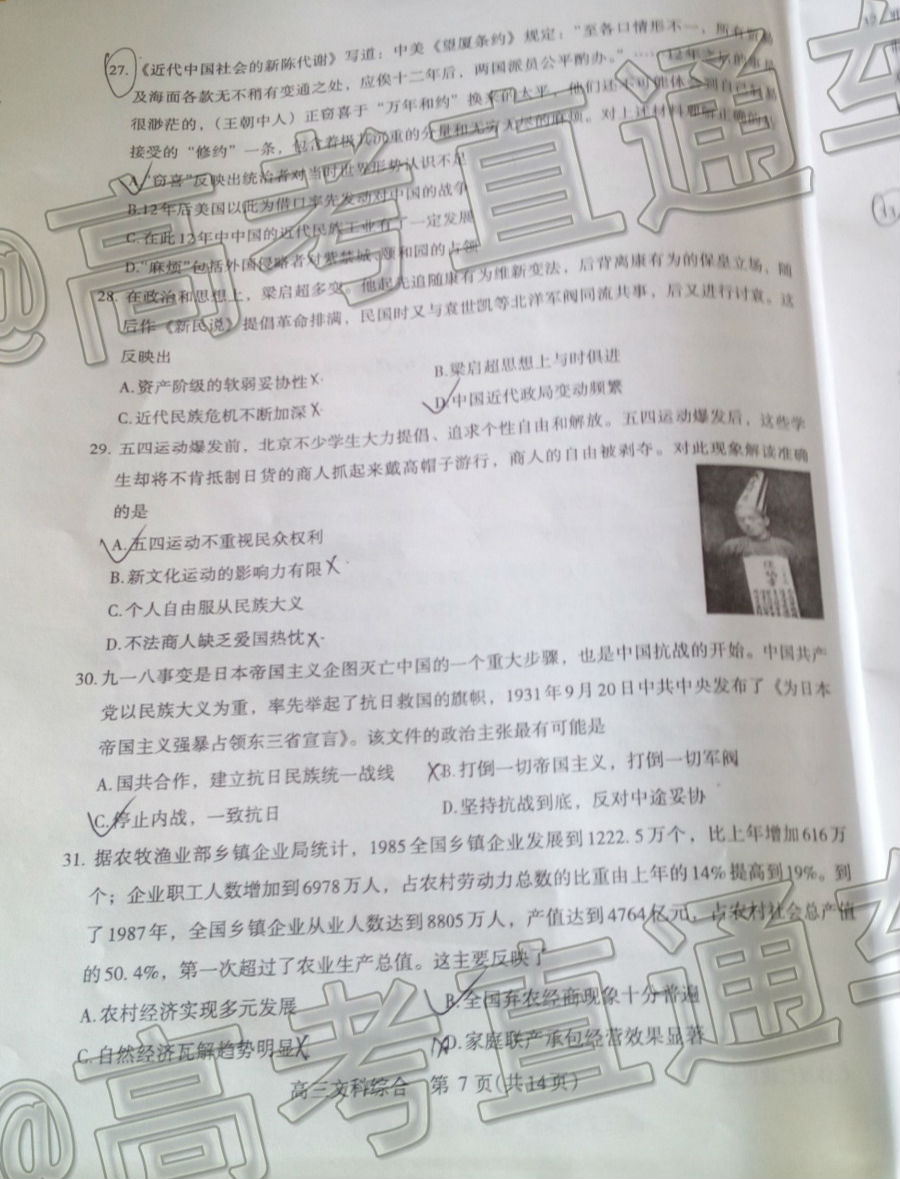 27.《近代中国社会的新陈代谢》写道：中美《望厦条约》规定：“至各口情形不一，所有贸易
及海面各款无不稍有变通之处，应俟十二年后，两国派员公平酌办。”……12年之后的事是
很渺茫的，(王朝中人) 正窃喜于“万年和约”换来的太平，他们还不可能体会到自己轻易
接受的“修约”一条，包含着极其沉重的分量和无穷无尽的麻烦。对上述材料理解正确的是
A.“窃喜”反映出统治者对当时世界形势认识不足
B.12年后美国以此为借口率先发动对中国的战争
C.在此12年中中国的近代民族工业有了一定发展
D.“麻烦”包括外国侵略者对紫禁城、颐和园的占领
28. 在政治和思想上，梁启超多变。他起先追随康有为维新变法，后背离康有为的保皇立场，随
后作《新民说》提倡革命排满，民国时又与袁世凯等北洋军阀同流共事，后又进行讨袁。这
反映出
A.资产阶级的软弱妥协性 B.梁启超思想上与时俱进
C.近代民族危机不断加深 D.中国近代政局变动频繁
29. 五四运动爆发前，北京不少学生大力提倡、追求个性自由和解放。五四运动爆发后，这些学
生却将不肯抵制日货的商人抓起来戴高帽子游行，商人的自由被剥夺。对此现象解读准确
的是
A.五四运动不重视民众权利
B.新文化运动的影响力有限
C.个人自由服从民族大义
D.不法商人缺乏爱国热忱
30. 九一八事变是日本帝国主义企图灭亡中国的一个重大步骤，也是中国抗战的开始。中国共产
党以民族大义为重，率先举起了抗日救国的旗帜，1931年9月20日中共中央发布了《为日本
帝国主义强暴占领东三省宣言》。该文件的政治主张最有可能是
A.国共合作，建立抗日民族统一战线 B.打倒一切帝国主义，打倒一切军阀
C.停止内战，一致抗日 D.坚持抗战到底，反对中途妥协
31. 据农牧渔业部乡镇企业局统计，1985全国乡镇企业发展到1222.5万个，比上年增加616万
个；企业职工人数增加到6978万人，占农村劳动力总数的比重由上年的14%提高到19%。到
了1987年，全国乡镇企业从业人数达到8805万人，产值达到4764亿元，占农村社会总产值
的50.4%，第一次超过了农业生产总值。这主要反映了
A.农村经济实现多元发展 B.全国弃农经商现象十分普遍
C.自然经济瓦解趋势明显 D.家庭联产承包经营效果显著
高三文科综合 第7页(共14页)
@高考直通车
@高考直通车